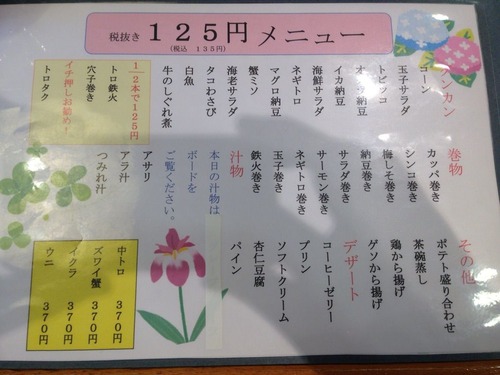 税抜き 125円 メニュー
(税込 135円)
グンカン
コーン
玉子サラダ
トビッコ
オクラ納豆
イカ納豆
海鮮サラダ
ネギトロ
マグロ納豆
蟹ミソ
海老サラダ
タコわさび
白魚
牛のしぐれ煮
1/2本で125円
トロ鉄火
穴子巻き
イチ押しお勧め!
トロタク
巻物
カッパ巻き
シンコ巻き
梅しそ巻き
納豆巻き
サラダ巻き
サーモン巻き
ネギトロ巻き
玉子巻き
鉄火巻き
汁物
本日の汁物は
ボードを
ご覧ください。
アサリ
アラ汁
つみれ汁
その他
ポテト盛り合わせ
茶碗蒸し
鶏から揚げ
ゲソから揚げ
デザート
コーヒーゼリー
プリン
ソフトクリーム
杏仁豆腐
パイン
中トロ 370円
ズワイ蟹 370円
イクラ 370円
ウニ 370円